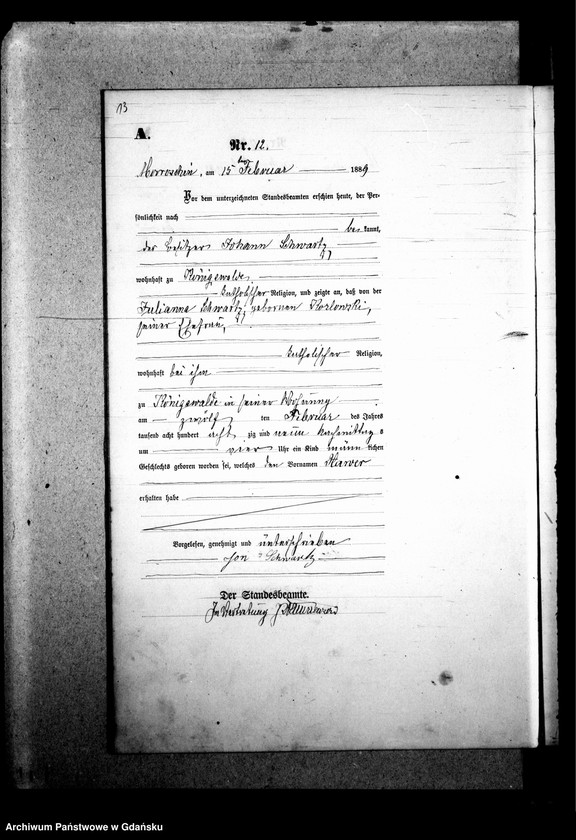 13
A.
Nr. 12.
am 15ten Februar 1889
Vor dem unterzeichneten Standesbeamten erschien heute, der Per-
sönlichkeit nach
be kannt,
der Besitzer Johann Schwartz
wohnhaft zu Königswalde,
katholischer Religion, und zeigte an, daß von der
Julianna Schwartz, geborenen Kozlowski,
seiner Ehefrau,
katholischer Religion,
wohnhaft bei ihm
zu Königswalde in seiner Wohnung
am zwölf ten Februar des Jahres
tausend acht hundert acht zig und neun Nachmittag s
um vier Uhr ein Kind männ lichen
Geschlechts geboren worden sei, welches den Vornamen
erhalten habe
Vorgelesen, genehmigt und unterschrieben
Schwartz
Der Standesbeamte.
In Vertretung
Archiwum Państwowe w Gdańsku